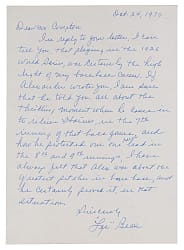 Oct 24, 1970
Dear Mr
In reply to your letter, I can
tell you that playing in the 1926
World Series, was certainly the high
light of my baseball career. If
Alexander wrote you, I am sure
that he told you all about the
thrilling moment when he came in
to relieve Haines, in the 7th
inning of that game, and
how he protected our one lead in
the 8th and 9th innings. I have
always felt that Alex was about the
greatest pitcher in base ball, and
he certainly proved it in that
situation.
Sincerely
Les Bell